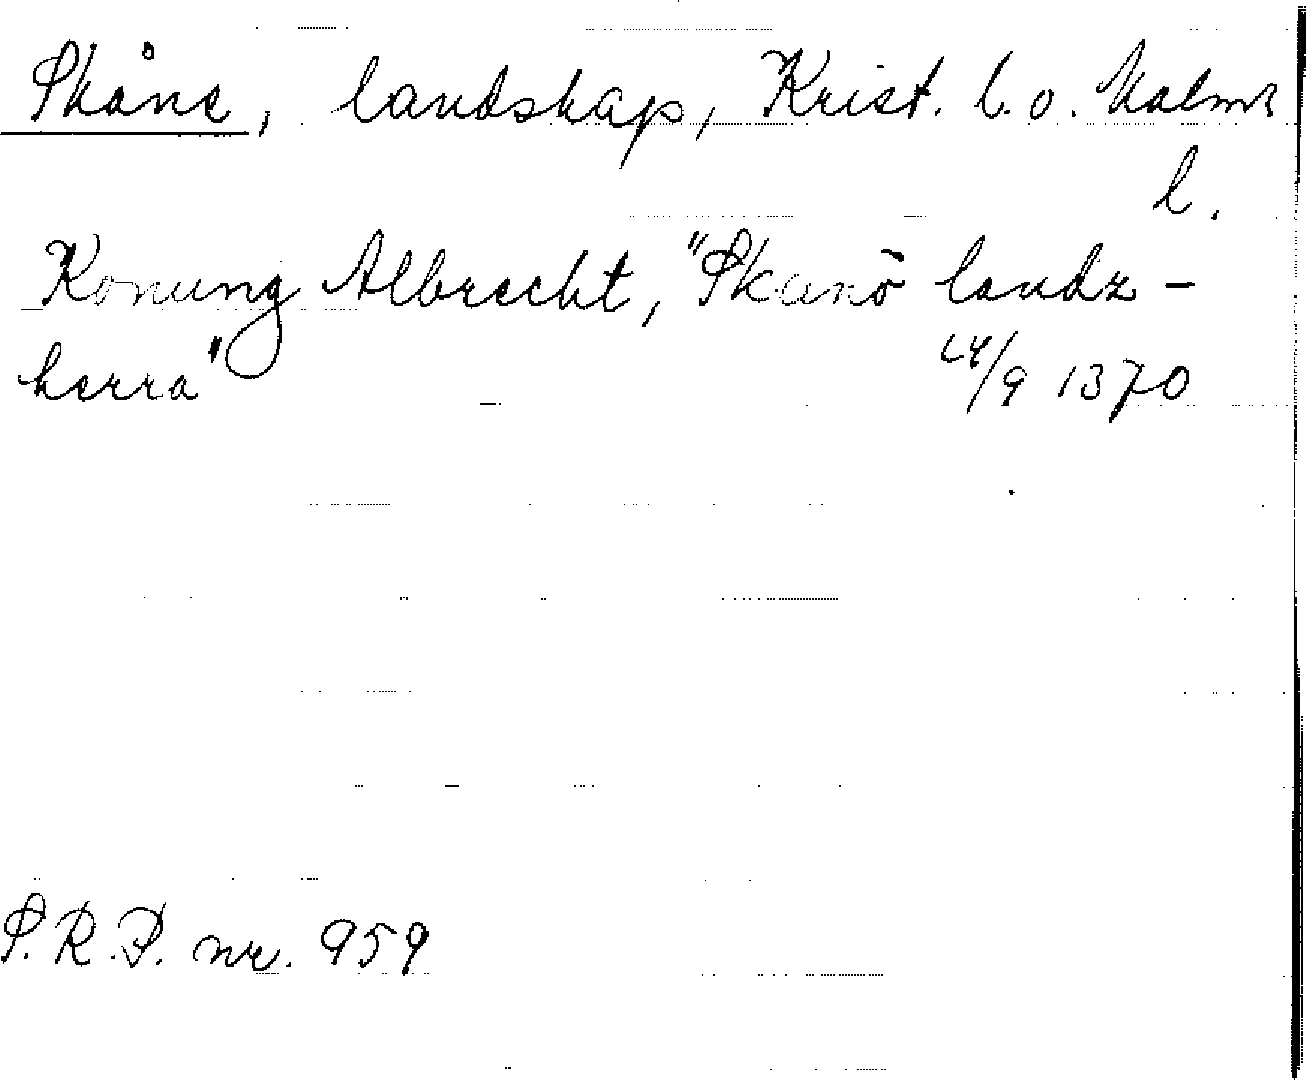 Skåne, landskap, Krist. l. o. Malmö
l.
Konung Albrecht, "Skanö landz-
herra" 24/9 1370
S.R.P. nr. 959